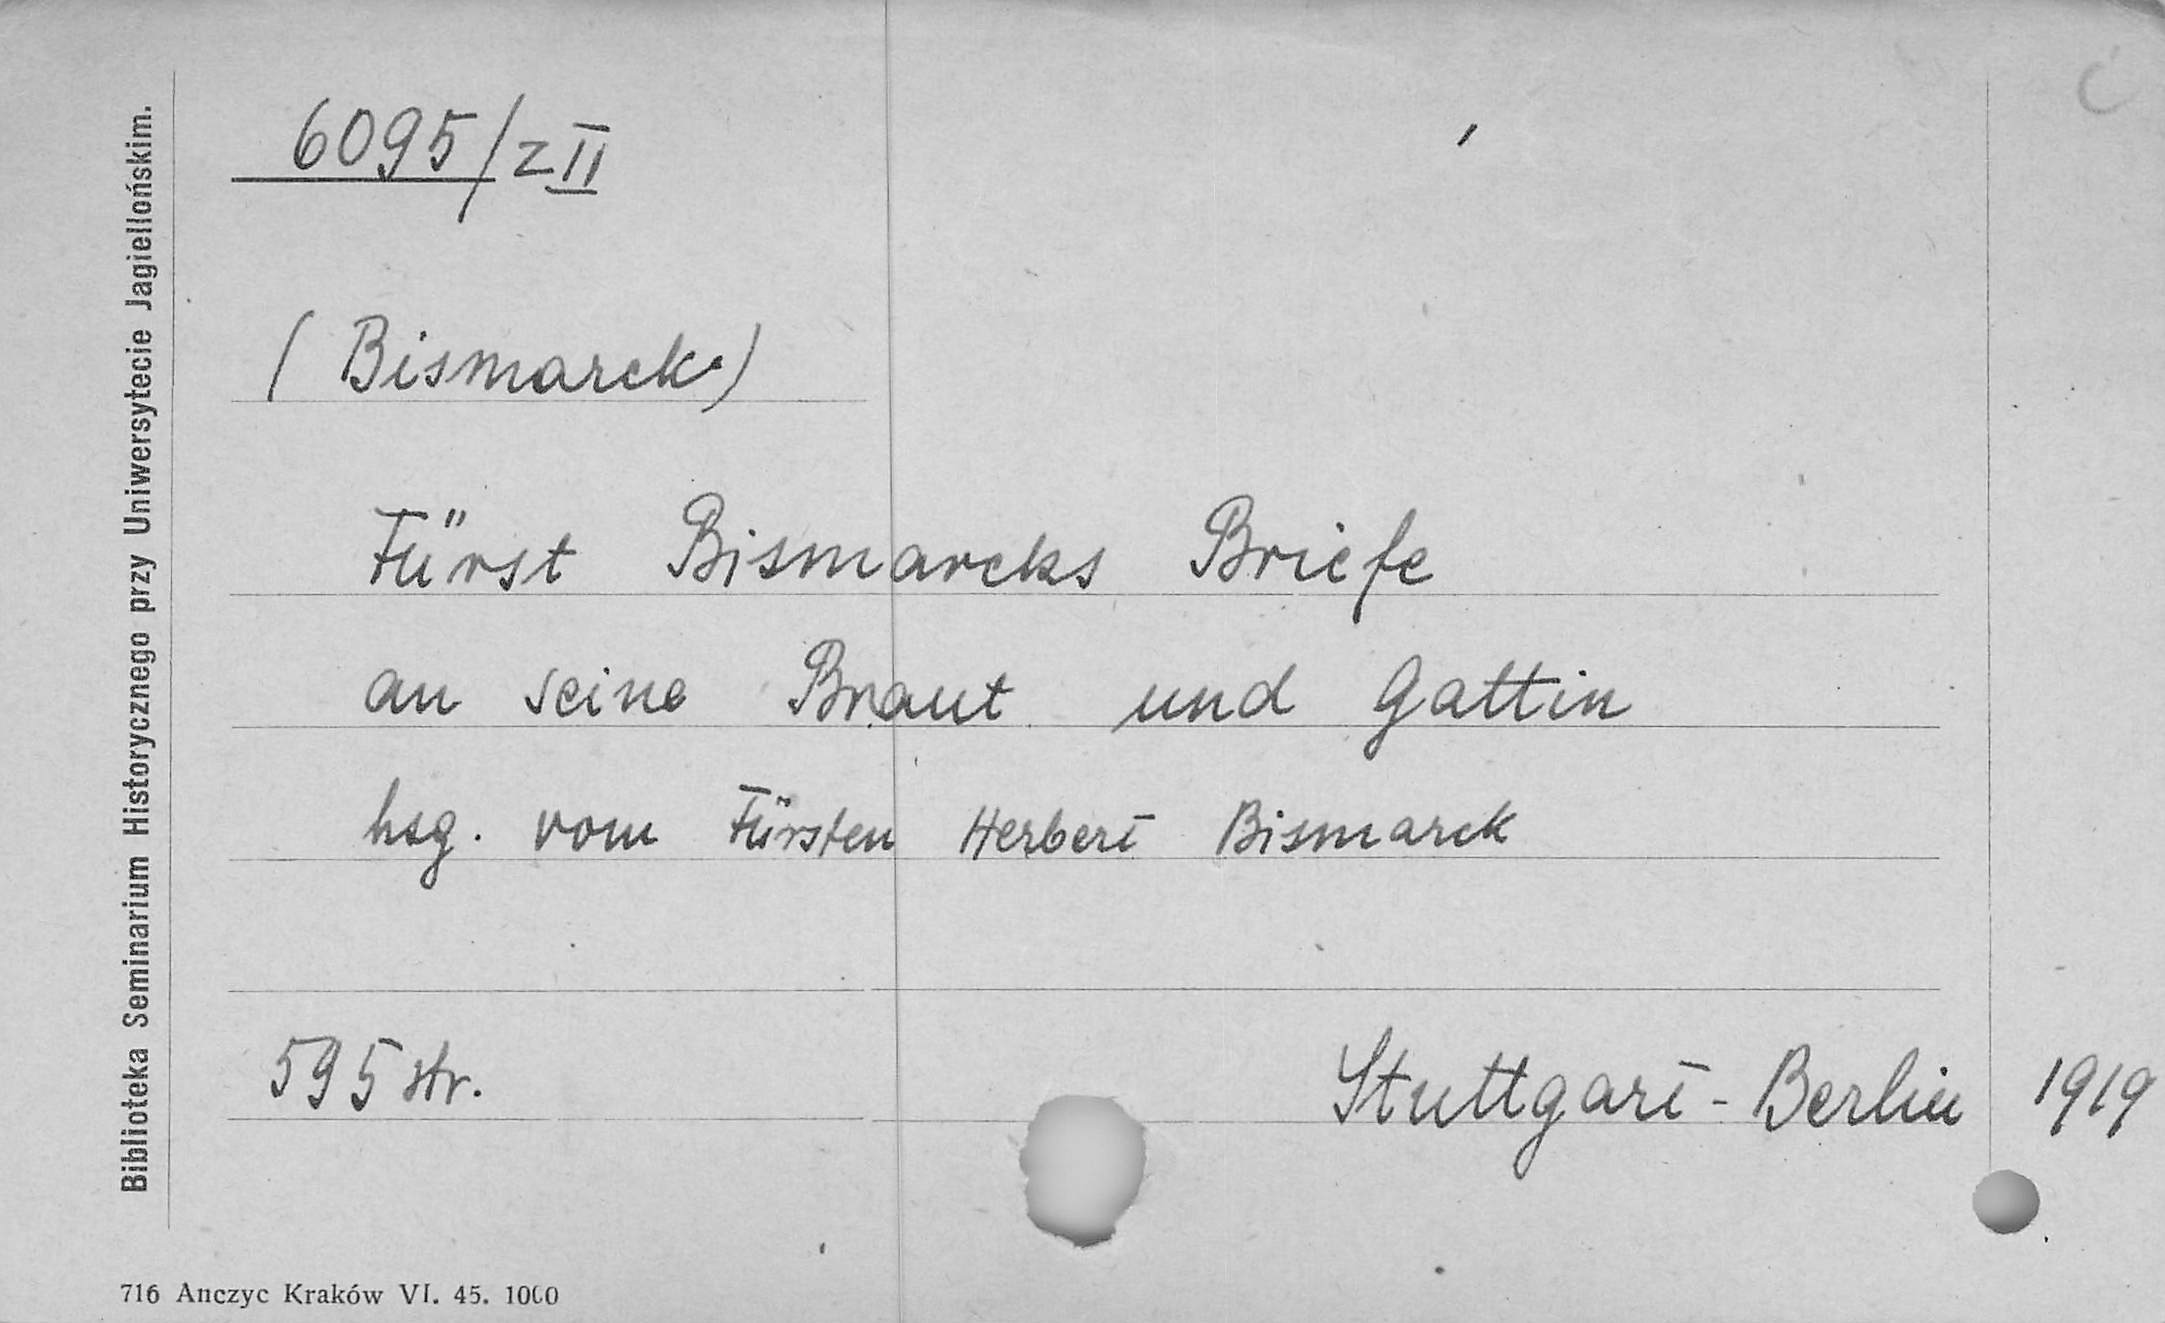 Biblioteka Seminarium Historycznego przy Uniwersytecie Jagiellońskim.
6095/z II
(Bismarck.)
Fürst Bismarcks Briefe
an seine Braut und Gattin
hsg. vom Fürsten Herbert Bismarck
595 str.
Stuttgart - Berlin 1919
716 Anczyc Kraków VI. 45. 1000